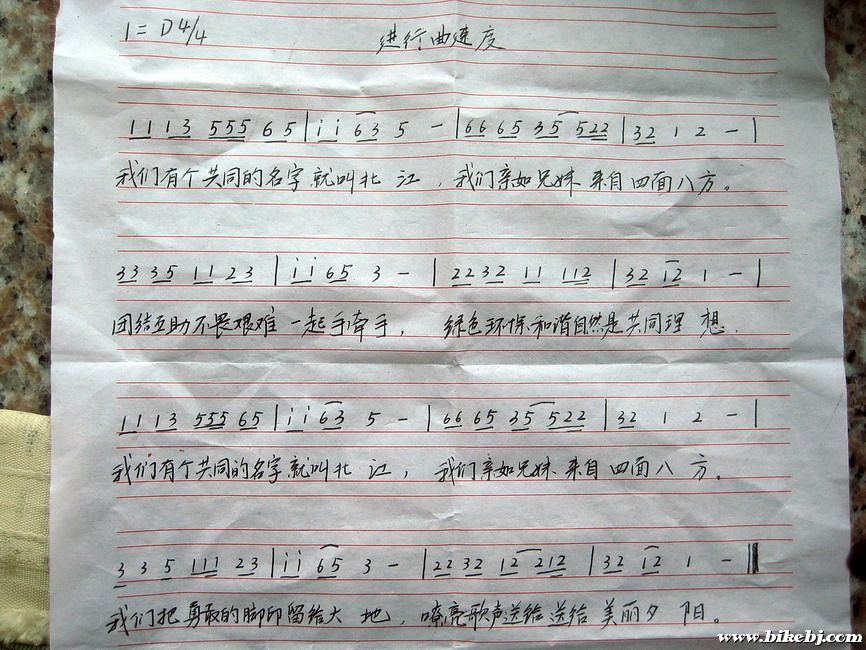 1=D 4/4 进行曲速度
1 1 1 3 5 5 5 6 5 | i i 6 3 5 - | 6 6 6 5 3 5 5 2 2 | 3 2 1 2 - |
我们有个共同的名字就叫北江，我们亲如兄妹来自四面八方。
3 3 3 5 1 1 2 3 | i i 6 5 3 - | 2 2 3 2 1 1 1 1 2 | 3 2 1 2 1 - |
团结互助不畏艰难一起手牵手，绿色环保和谐自然是共同理想.
1 1 1 3 5 5 5 6 5 | i i 6 3 5 - | 6 6 6 5 3 5 5 2 2 | 3 2 1 2 - |
我们有个共同的名字就叫北江，我们亲如兄妹来自四面八方。
3 3 5 1 1 1 2 3 | i i 6 5 3 - | 2 2 3 2 1 2 2 1 2 | 3 2 1 2 1 - ‖
我们把勇敢的脚印留给大地，嘹亮歌声送给送给美丽夕阳。
www.bikebj.com